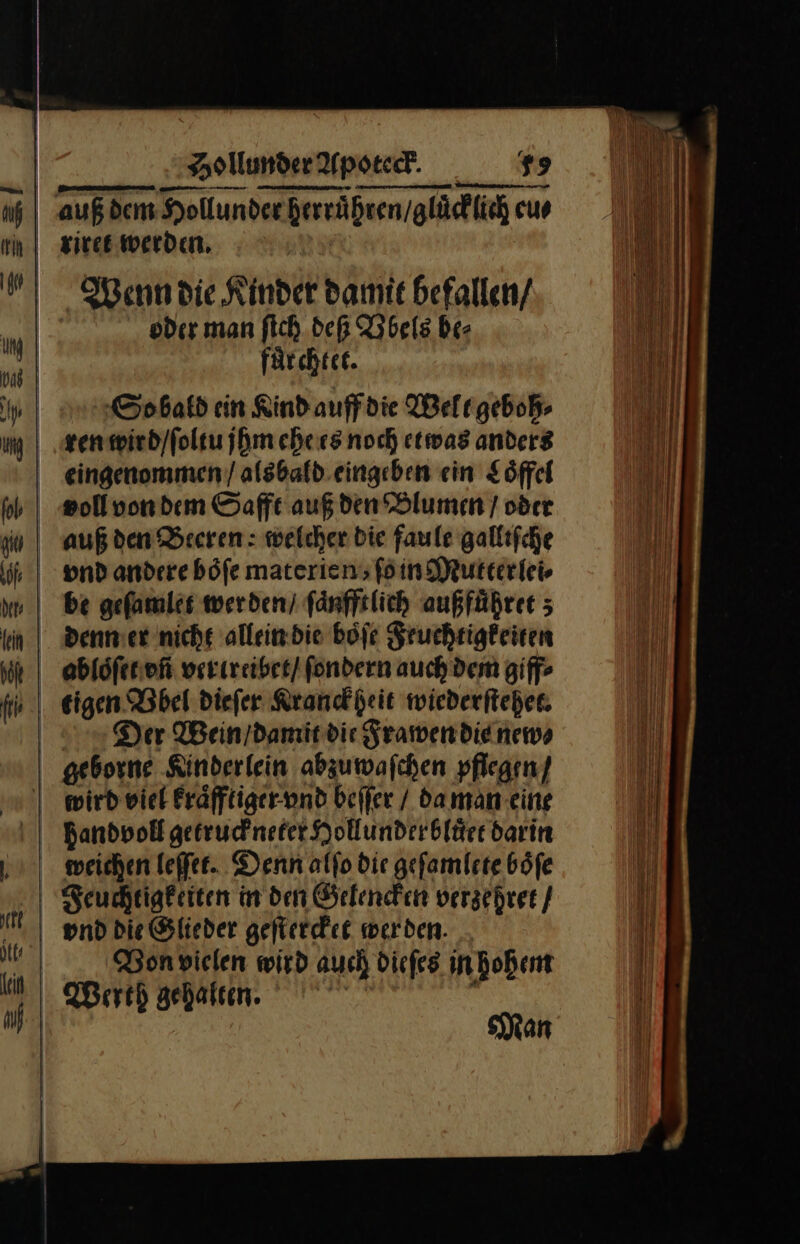 Hollunder Apoteck. 59
auß dem Hollunder herruͤhren/gluͤcklich cu⸗
riret werden.
Wenn die Kinder damit befallen/
oder man ſich deß Vbels be⸗
fuͤrchtet.
So bald ein Kind auff die Welt geboh⸗
ren wird/ſoltu jhm ehe es noch etwas anders
eingenommen / alsbald eingeben ein Loͤffel
voll von dem Safft auß den Blumen / oder
auß den Beeren: welcher die faule galliſche
vnd andere boͤſe materien, ſo in Mutterlei⸗
be geſamlet werden/ ſaͤnfftlich außfuͤhret;
denn er nicht allein die boͤſe Feuchtigkeiten
abloͤſet vñ vertreibet/ ſondern auch dem giff⸗
tigen Vbel dieſer Kranckheit wiederſtehet.
Der Wein/damit die Frawen die new⸗
geborne Kinderlein abzuwaſchen pflegen/
wird viel kraͤfftiger vnd beſſer / da man eine
handvoll getruckneter Hollunderbluͤet darin
weichen leſſet. Denn alſo die geſamlete boͤſe
Feuchtigkeiten in den Gelencken verzehret /
vnd die Glieder geſtercket werden.
Von vielen wird auch dieſes in hohem
Werth gehalten.
Man